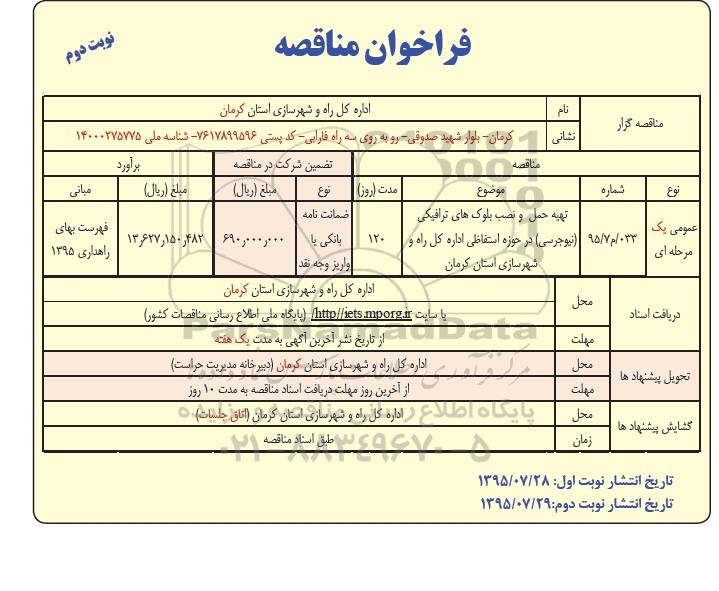 فراخوان مناقصه
نوبت دوم
مناقصه گزار
نام
اداره کل راه و شهرسازی استان کرمان
نشانی
کرمان- بلوار شهید صدوقی- رو به روی سه راه فارابی- کد پستی ۷۶۱۷۸۹۹۵۹۶- شناسه ملی ۱۴۰۰۰۲۷۵۷۷۵
مناقصه
تضمین شرکت در مناقصه
برآورد
نوع
شماره
موضوع
مدت (روز)
نوع
مبلغ (ریال)
مبلغ (ریال)
مبانی
عمومی یک
مرحله ای
۹۵/۷م/۰۳۳
تهیه حمل و نصب بلوک های ترافیکی
(نیوجرسی) در حوزه استفاظی اداره کل راه و
شهرسازی استان کرمان
۱۲۰
ضمانت نامه
بانکی یا
واریز وجه نقد
۶۹۰٫۰۰۰٫۰۰۰
۱۳٫۶۲۷٫۱۵۰٫۴۸۲
فهرست بهای
راهداری ۱۳۹۵
دریافت اسناد
محل
اداره کل راه و شهرسازی استان کرمان
یا سایت http//iets.mporg.ir/ (پایگاه ملی اطلاع رسانی مناقصات کشور)
مهلت
از تاریخ نشر آخرین آگهی به مدت یک هفته
تحویل پیشنهاد ها
محل
اداره کل راه و شهرسازی استان کرمان (دبیرخانه مدیریت حراست)
مهلت
از آخرین روز مهلت دریافت اسناد مناقصه به مدت ۱۰ روز
گشایش پیشنهاد ها
محل
اداره کل راه و شهرسازی استان کرمان (اتاق جلسات)
زمان
طبق اسناد مناقصه
ParsNamadData
پایگاه اطلاع رسانی
۰۲۱-۸۸۳۴۹۶۷۰-۵
تاریخ انتشار نوبت اول: ۱۳۹۵/۰۷/۲۸
تاریخ انتشار نوبت دوم:۱۳۹۵/۰۷/۲۹